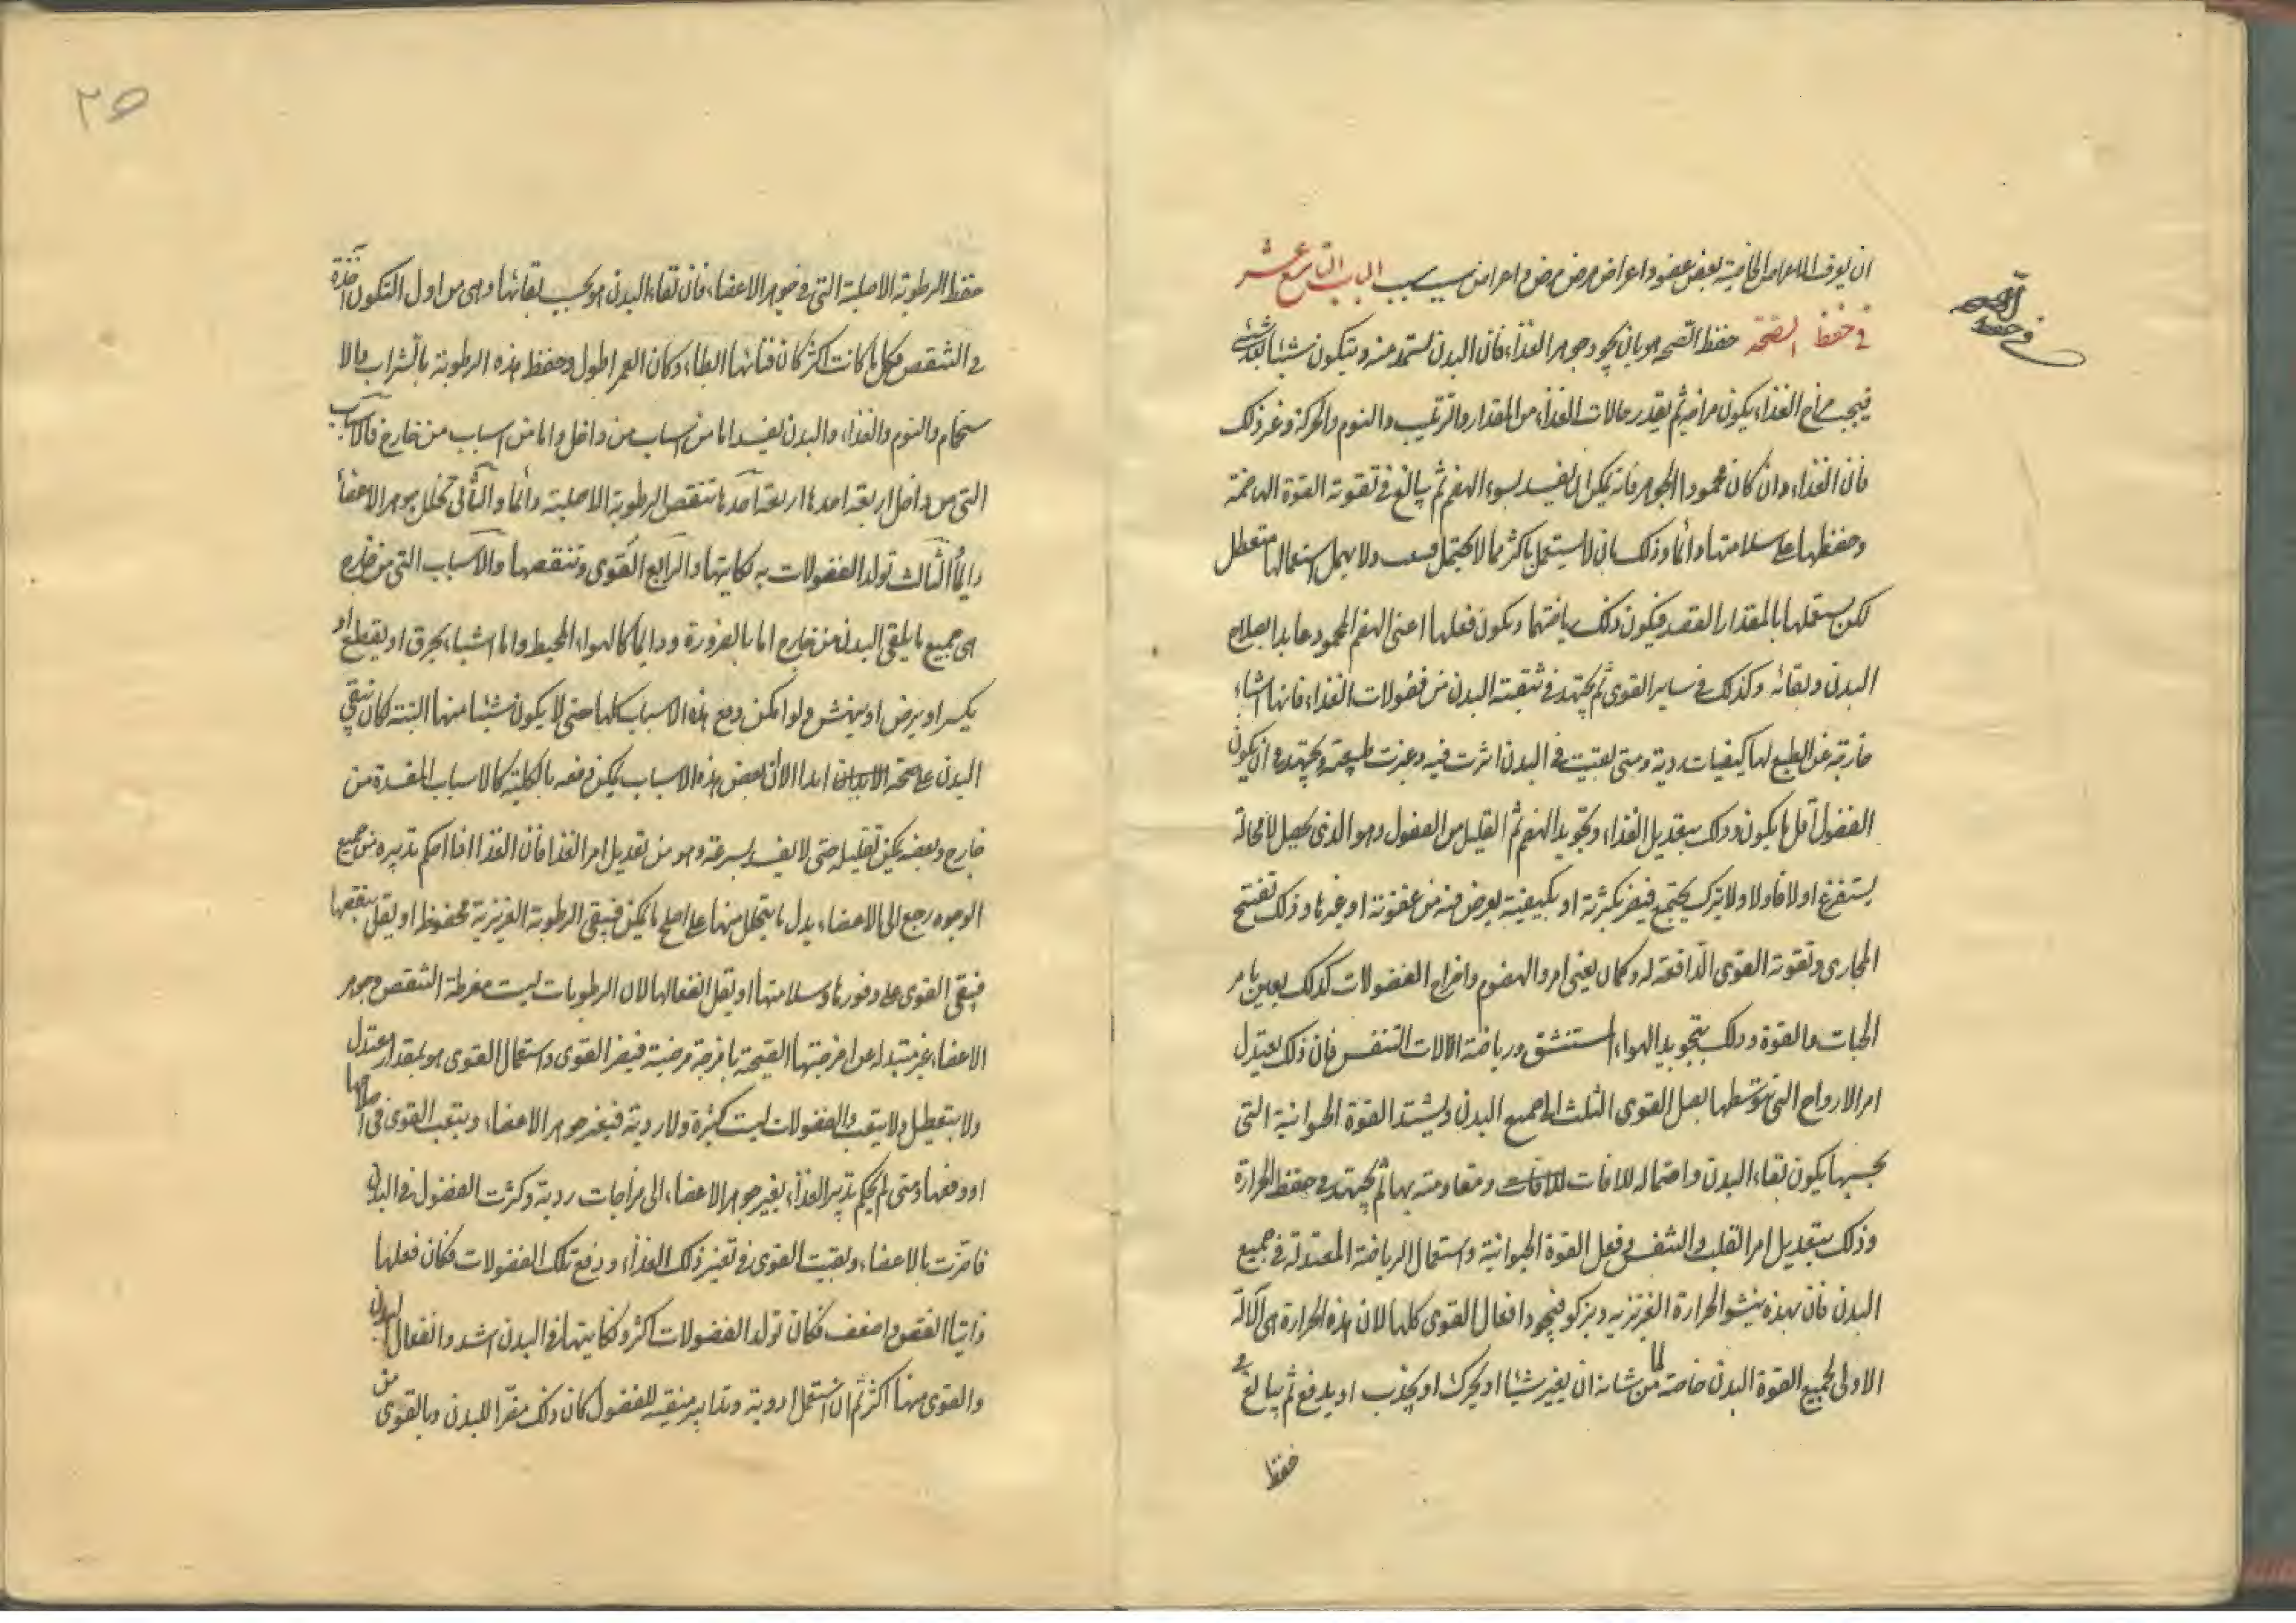 ان يعرف الاعراض الخاصية بعض عضو واعراض مرض مرض واعراض سبب سبب الباب التاسع عشر
في حفظ الصحة حفظ الصحة هو بان يجود جوهر الغذاء فان البدن يستمد منه ويتكون شيئا بعد شئ
في حفظ الصحة
فيجب مزاج الغذاء يكون مزاجه ثم يقدر حالات الغذاء من المقدار والترتيب والنوم والحركة وغير ذلك
فان الغذاء وان كان محمود الجوهر فانه يمكن ان يفسد لسوء الهضم ثم يبالغ في تقوية القوة الهاضمة
وحفظها على سلامتها دائما وذلك بان لا يستعمل باكثر مما لا يحتمل فيضعف ولا يهمل استعمالها فتعطل
لكن يستعملها بالمقدار القصد فيكون ذلك رياضتها ويكون فعلها اعنى الهضم المحمود عايدا بصلاح
البدن وبقائه وكذلك في ساير القوى ثم يجتهد في تنقية البدن من فضولات الغذاء فانها اشياء
خارجة عن الطبع لها كيفيات ردية ومتى بقيت في البدن اثرت فيه وغيرت طبيعته ويجتهد في ان يكون
الفضول اقل ما يكون وذلك بتعديل الغذاء وتجويد الهضم ثم القليل من الفضول وهو الذى يحصل لا محالة
يستفرغ اولا فاولا ولا يترك يجتمع فيضر بكثرته او بكيفيته يعرض فيه من عفونة او غيرها وذلك بتفتيح
المجارى وتقوية القوى الدافعة له وكما يعنى امر الهضوم واخراج الفضولات كذلك يعنى بامر
الحيات والقوة وذلك بتجويد الهواء المستنشق ورياضة الالات التنفس فان ذلك يعتدل
امر الارواح التي بتوسطها يصل القوى الثلث الى جميع البدن ويشتد القوة الحيوانية التى
بحسبها يكون بقاء البدن واحتماله للافات للافات ومقاومته بها ثم يجتهد في حفظ الحرارة
وذلك بتعديل امر القلب والتنفس وفعل القوة الحيوانية واستعمال الرياضة المعتدلة في جميع
البدن فان بهذه ينشو الحرارة الغريزيه ويزكو فيجود افعال القوى كلها لان هذه الحرارة هى الآلة
الاولى لجميع القوة البدن خاصة لما من شانه ان يغير شيئا او يحرك او يجذب او يدفع ثم يبالغ في
حفظ
٢٥
حفظ الرطوبة الاصلية التي في جوهر الاعضاء فان بقاء البدن هو بحسب بقائها وهى من اول التكون آخذة
في التنقص فكل ما كانت اكثر كان فنائها ابطاء وكان العمر اطول وحفظ هذه الرطوبة بالشراب والا
ستحمام والنوم والغذاء والبدن يفسد اما من اسباب من داخل واما من اسباب من خارج فالاسباب
التى من داخل اربعة احدها تنقص الرطوبة الاصلية دائما والثانى تحلل جوهر الاعضاء
دايما الثالث تولد الفضولات به نكايتها والرابع القوى وتنقصها والاسباب التى من خارج
هى جميع ما يلقى البدن من خارج اما بالضرورة ودايما كالهواء المحيط واما اشياء يحرق او يقطع او
يكسر او يرض او ينهش ولو امكن دفع هذه الاسباب كلها حتى لا يكون شيئا منها البتة كان يبقى
البدن على صحة الابدان ابدا الا ان بعض هذه الاسباب يمكن دفعه بالكلية كالاسباب المفسدة من
خارج وبعضه يمكن تقليله حتى لا يفسد بسرعة وهو من تعديل امر الغذا فان الغذا اذا احكم تدبيره من جميع
الوجوه رجع الى الاعضاء بدل ما يتحلل منها على اصلح ما يمكن فيبقى الرطوبة الغريزية محفوظة او يقل تنقصها
فيبقى القوى على وفورها وسلامتها او يقل انفعالها لان الرطوبات ليست مفرطة التنقص وجوهر
الاعضاء غير متبدله عن امزجتها الصحيحة بامزجة مرضية فيضر القوى واستعمال القوى هو بمقدار معتدل
ولا يتعطل ولا يتعب والفضولات ليست كثيرة ولا ردية فيغير جوهر الاعضاء ويتعب القوى في اصلاحها
او دفعها ومتى لم يحكم تدبير الغذاء يغير جوهر الاعضاء الى مزاجات ردية وكثرت الفضول في البدن
فاضرت بالاعضاء وبقيت القوى في تغير ذلك الغذاء ودفع تلك الفضولات فكان فعلها
ذاتيا انقص واضعف فكان تولد الفضولات اكثر ونكايتها في البدن اشد وانفعال البدن
والقوى منها اكثر ثم ان استعمل ادوية وتدابير منقية للفضول كان ذلك مضرا للبدن وبالقوى من